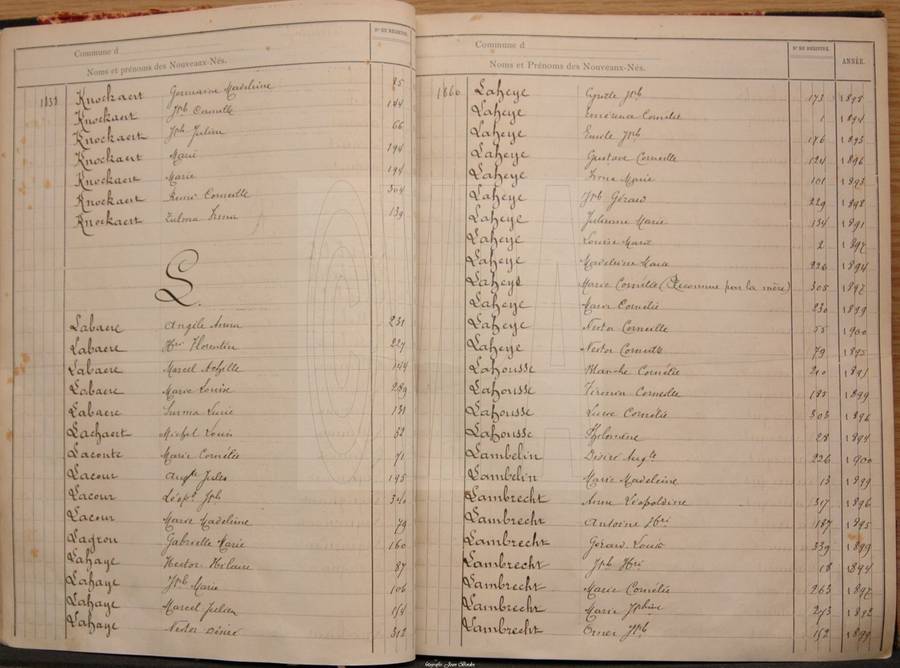 Commune d
Nos DE REGISTRE.
Noms et prénoms des Nouveaux-Nés.
1838 Knockaert Germaine Madeleine 25
Knockaert Jph Camille 144
Knockaert Jph Julien 66
Knockaert Marie 194
Knockaert Marie 194
Knockaert Remi Corneille 304
Knockaert Zulma Irma 139
L.
Labaere Angèle Anna 231
Labaere Hri Florentin 227
Labaere Marcel Achille 144
Labaere Marie Louise 289
Labaere Lucie 131
Lachaert Michel Louis 52
Laconte Marie Cornélie 71
Lacour Augte Jules 195
Lacour Léopd Jph 340
Lacour Marie Madeleine 79
Lagrou Gabrielle Marie 160
Lahaye Hector Hilaire 87
Lahaye Jph Marie 106
Lahaye Marcel Julien 154
Lahaye Nestor Désiré 312
Commune d
Nos DE REGISTRE. ANNÉE.
Noms et Prénoms des Nouveaux-Nés.
1860 Laheye Cyrille Jph 173 1898
Laheye Emérence Cornélie 1 1894
Laheye Emile Jph 176 1895
Laheye Gustave Corneille 124 1896
Laheye Irma Marie 101 1893
Laheye Jph Gérard 229 1898
Laheye Julienne Marie 134 1891
Laheye Louise Marie 2 1897
Laheye Madeleine Marie 226 1894
Laheye Marie Cornélie (Reconnue par la mère) 305 1897
Laheye Marie Cornélie 230 1899
Laheye Nestor Corneille 55 1900
Laheye Nestor Corneille 79 1895
Lahousse Blanche Cornélie 210 1891
Lahousse Cornélie 185 1899
Lahousse Lucie Cornélie 303 1896
Lahousse Philomène 28 1894
Lambelin Désiré Augte 226 1900
Lambelin Marie Madeleine 13 1899
Lambrecht Anna Léopoldine 317 1896
Lambrecht Antoine Hri 187 1895
Lambrecht Gérard Louis 339 1899
Lambrecht Jph Hri 18 1894
Lambrecht Marie Cornélie 263 1897
Lambrecht Marie Jphine 273 1892
Lambrecht Omer Jph 152 1899
Copyright Jean Blondin